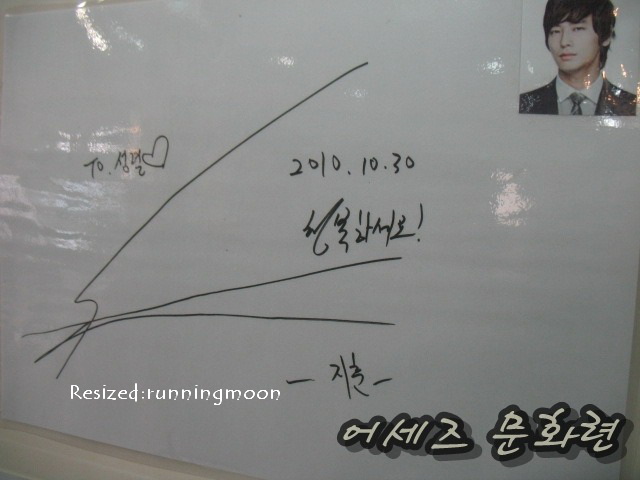 To. 성렬♡
2010.10.30
행복하세요!
- 지훈 -
Resized:runningmoon
어세즈 문화련